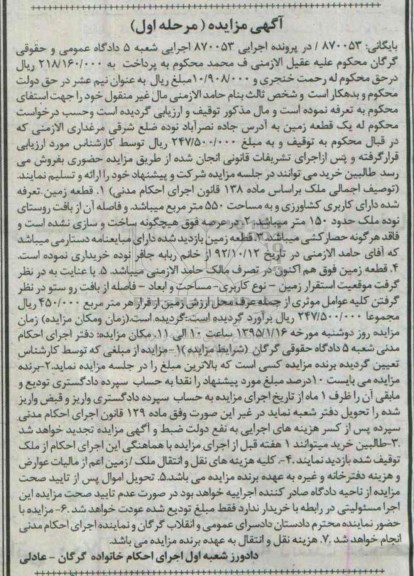 آگهی مزایده ( مرحله اول)
بایگانی: ۸۷۰۰۵۳ / در پرونده اجرایی ۸۷۰۰۵۳ اجرایی شعبه ۵ دادگاه عمومی و حقوقی
گرگان محکوم علیه عقیل الازمنی ف محمد محکوم به پرداخت به ۲۱۸/۱۶۰/۰۰۰ ریال
درحق محکوم له رحمت خنجری و ۱۰/۹۰۸/۰۰۰مبلغ ریال به عنوان نیم عشر در حق دولت
محکوم و بدهکار است و شخص ثالث بنام حامد الازمنی مال غیر منقول خود را جهت استفای
محکوم به تعرفه نموده است و مال مذکور توقیف و ارزیابی گردیده است وحسب درخواست
محکوم له یک قطعه زمین به آدرس جاده نصرآباد نوده ضلع شرقی مرغداری الازمنی که
در قبال محکوم به توقیف و به مبلغ ۲۴۷/۵۰۰/۰۰۰ ریال توسط کارشناس مورد ارزیابی
قرارگرفته و پس ازاجرای تشریفات قانونی انجان شده از طریق مزایده حضوری بفروش می
رسد طالبین خرید می توانند در جلسه مزایده شرکت و پیشنهاد خود را ارائه و تسلیم نمایند.
(توصیف اجمالی ملک براساس ماده ۱۳۸ قانون اجرای احکام مدنی) ۱. قطعه زمین تعرفه
شده دارای کاربری کشاورزی و به مساحت ۵۵۰ متر مربع میباشد. و فاصله آن از بافت روستای
نوده ملک حدود ۱۵۰ متر میباشد ۲. در عرصه فوق هیچگونه ساخت و سازی نشده است و
فاقد هرگونه حصار کشی میباشد ۳. قطعه زمین بازدید شده دارای مبایعنامه دستارمی میباشد
که آقای حامد الازمنی در تاریخ ۹۲/۱۰/۱۲ از خانم ربابه جافر نوده خریداری نموده است.
۴. قطعه زمین فوق هم اکنون در تصرف مالک حامد الازمنی میباشد. ۵. با عنایت به در نظر
گرفت موقعیت استقرار زمین - نوع کاربری- مساحت و ابعاد - فاصله از بافت رو ستو در نظر
گرفتن کلیه عوامل موثری از جمله عرف محل ارزش زمین از قرار هر متر مربع ۴۵۰/۰۰۰ ریال
مجموعا ۲۴۷/۵۰۰/۰۰۰ ریال برآورد گردیده است:گردیده است.(زمان ومکان مزایده) زمان
مزایده روز دوشنبه مورخه ۱۳۹۵/۱/۱۶ ساعت ۱۰ الی ۱۱. مکان مزایده: دفتر اجرای احکام
مدنی شعبه ۵ دادگاه حقوقی گرگان (شرایط مزایده)۱- مزایده از مبلغی که توسط کارشناس
تعیین گردیده برنده مزایده کسی است که بالاترین مبلغ را در جلسه مزایده نماید.۲-برنده
مزایده می بایست ۱۰درصد مبلغ مورد پیشنهاد را نقدا به حساب سپرده دادگستری تودیع و
مابقی آن را ظرف ۱ ماه از تاریخ اجرای مزایده به حساب سپرده دادگستری واریز و قبض واریز
شده را تحویل دفتر شعبه نماید در غیر این صورت وفق ماده ۱۲۹ قانون اجرای احکام مدنی
سپرده پس از کسر هزینه های اجرایی به نفع دولت ضبط و آگهی مزایده تجدید خواهد شد
۳.-طالبین خرید میتوانند ۱ هفته قبل از اجرای مزایده با هماهنگی این اجرای احکام از ملک
توقیف شده بازدید نمایند.۴-. کلیه هزینه های نقل و انتقال ملک /زمین اعم از مالیات عوارض
و هزینه دفترخانه و غیره به عهده برنده مزایده می باشد.۵. تحویل اموال پس از تایید صحت
مزایده از ناحیه دادگاه صادر کننده اجراییه خواهد بود در صورت عدم تایید صحت مزایده این
اجرا مسئولیتی در رابطه با خریدار ندارد فقط مبلغ تودیع شده عودت خواهد شد. ۶- مزایده با
حضور نماینده محترم دادستان دادسرای عمومی و انقلاب گرگان و نماینده اجرای احکام مدنی
انجام خواهد شد .۷. هزینه نقل و انتقال به عهده برنده مزایده می باشد.
دادورز شعبه اول اجرای احکام خانواده گرگان - عادلی